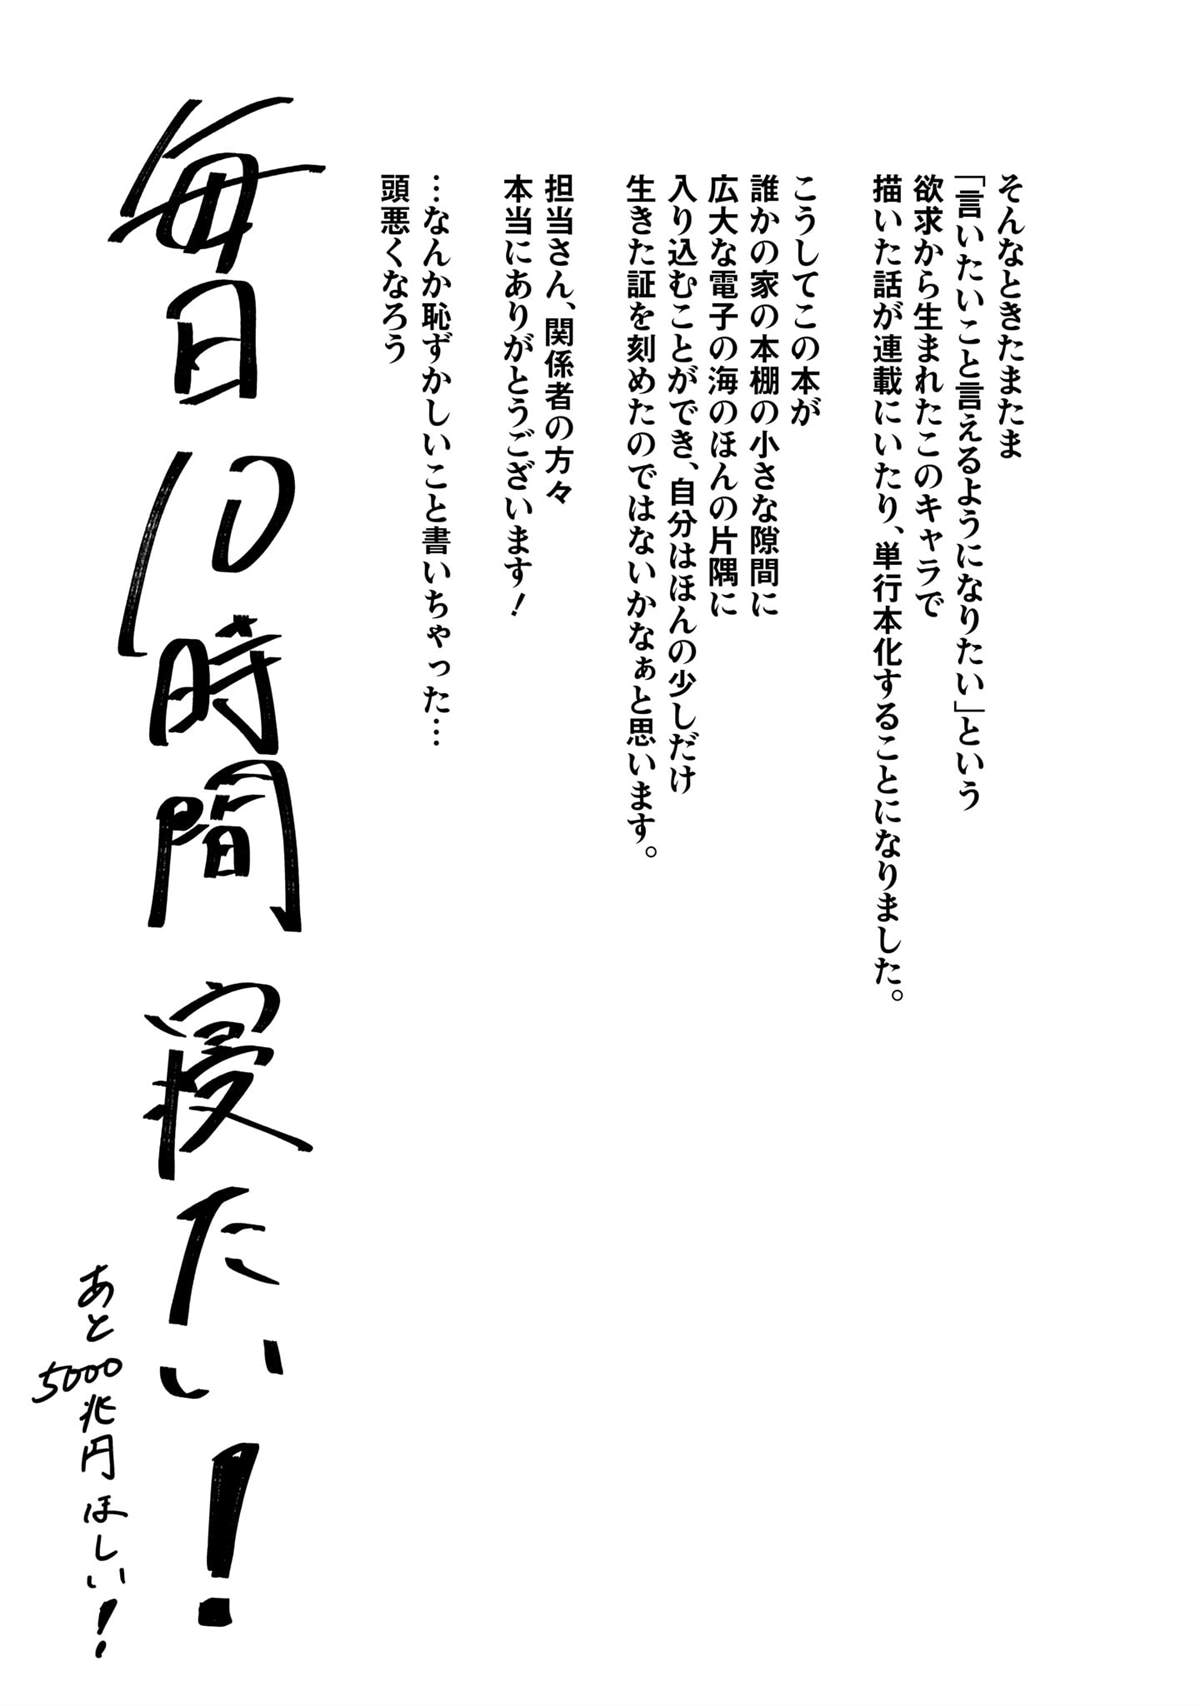 そんなときたまたま
「言いたいこと言えるようになりたい」という
欲求から生まれたこのキャラで
描いた話が連載にいたり、単行本化することになりました。
こうしてこの本が
誰かの家の本棚の小さな隙間に
広大な電子の海のほんの片隅に
入り込むことができ、自分はほんの少しだけ
生きた証を刻めたのではないかなぁと思います。
担当さん、関係者の方々
本当にありがとうございます!
…なんか恥ずかしいこと書いちゃった…
頭悪くなろう
毎日10時間寝たい!
あと5000兆円ほしい!